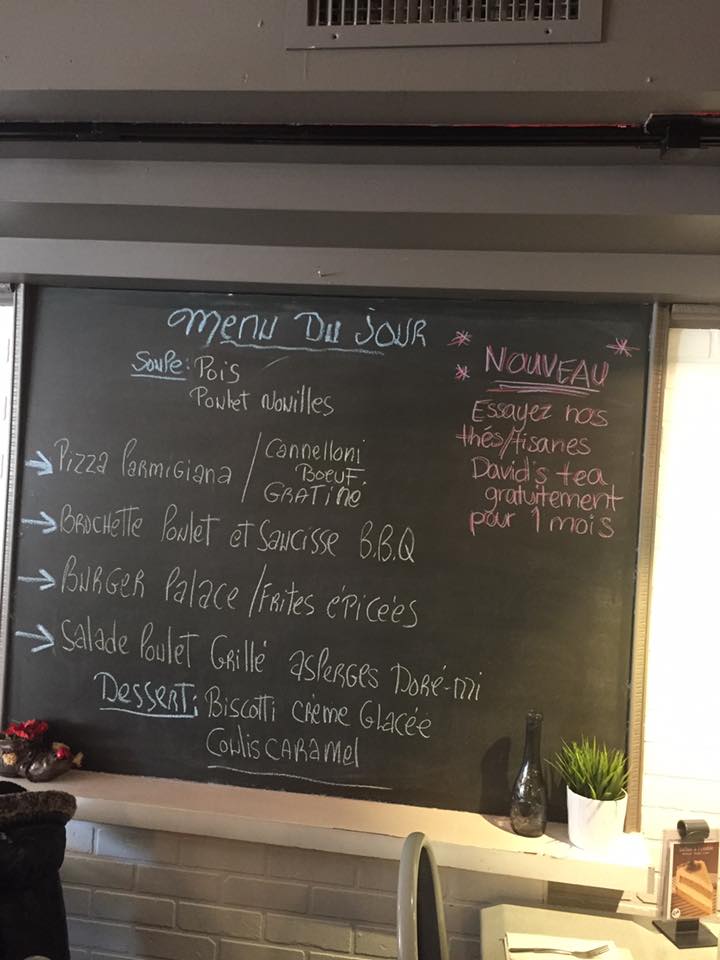 Menu Du Jour
Soupe: Pois
Poulet Nouilles
→ Pizza Parmigiana / Cannelloni
Boeuf
Gratiné
→ Brochette Poulet et Saucisse B.B.Q
→ Burger Palace / Frites épicées
→ Salade Poulet Grillé asperges Doré-mi
Dessert: Biscotti crème Glacée
Coulis Caramel
* NOUVEAU *
*
Essayez nos
thés/tisanes
David's tea
gratuitement
pour 1 mois